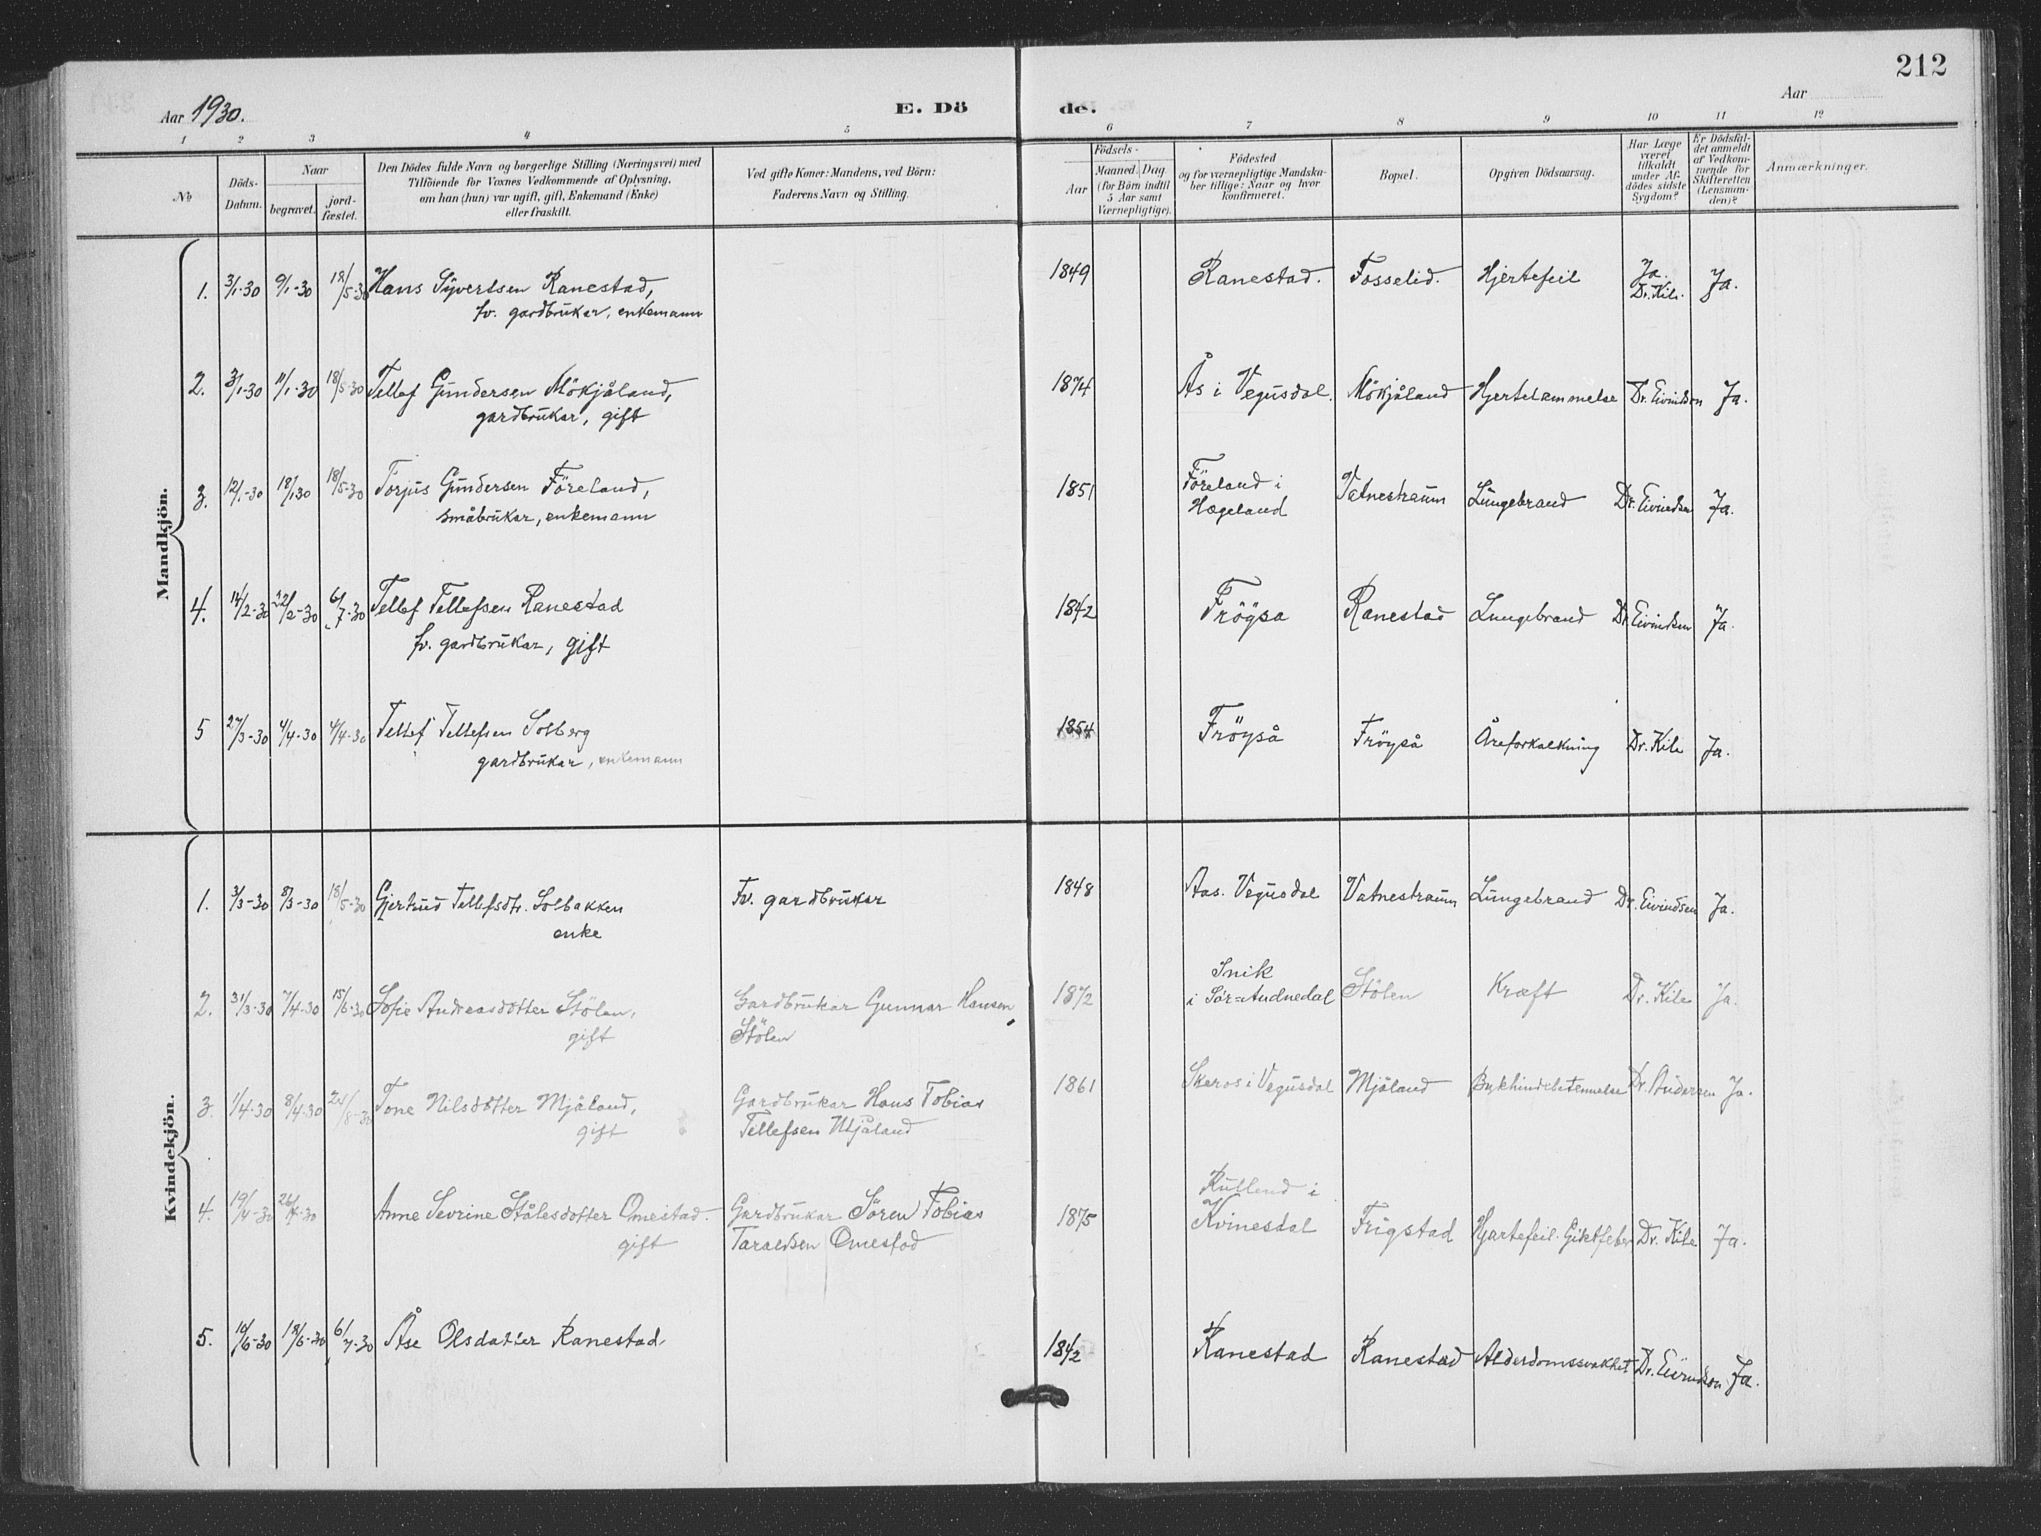 212
Aar 1930.
E. Dö de.
Aar
1 2 3 4 5 6 7 8 9 10 11 12
No
Döds-Datum.
Naar
begravet.
jord-fæstet.
Den Dödes fulde Navn og borgerlige Stilling (Næringsvei) med
Tilföiende for Voxnes Vedkommende af Oplysning,
om han (hun) var ugift, gift, Enkemand (Enke)
eller fraskilt.
Ved gifte Koner: Mandens, ved Börn:
Faderens Navn og Stilling.
Födsels-
Aar
Maaned. Dag
(for Börn indtil
5 Aar samt
Værnepligtige).
Födested
og for værnepligtige Mandska-
ber tillige: Naar og hvor
konfirmeret.
Bopæl.
Opgiven Dödsaarsag.
Har Læge
været
tilkaldt
under Af-
dödes sidste
Sygdom?
Er Dödsfal-
det anmeldt
af Vedkom-
mende for
Skifteretten
(Lensman-
den)?
Anmærkninger.
Mandkjön.
1. 3/1-30 9/1-30 18/5-30 Hans Syvertsen Ranestad, 1849 Ranestad. Fosselid. Hjertefeil Ja. Dr. Kile. Ja.
fv. gardbrukar, enkemann
2. 3/1-30 11/1-30 18/5-30 Tellef Gundersen Mökjåland, 1874 Ås i Vegusdal. Mökjåland Hjertelammelse Dr. Eivindsen Ja.
gardbrukar, gift
3. 12/1-30 18/1 30 18/5-30 Torjus Gundersen Föreland, 1851 Föreland i Hægeland Vatnestraum Lungebrand Dr. Eivindsen Ja.
småbrukar, enkemann
4. 14/2-30 22/2-30 6/7-30 Tellef Tellefsen Ranestad 1842 Fröysa Ranestad Lungebrand Dr Eivindsen Ja.
fv. gardbrukar, gift
5 27/3-30 4/4-30 4/4-30 Tellef Tellefsen Solberg 1854 Fröyså Fröyså Åreforkalkning Dr. Kile Ja.
gardbrukar, enkemann
Kvindekjön.
1. 3/3-30 8/3-30 18/5-30 Gjertrud Tellefsdtr. Solbakken Fv. gardbrukar 1848 Aas. Vegusdal Vatnestraum Lungebrand Dr. Eivindsen Ja.
enke
2. 31/3-30 7/4-30 15/6-30 Sofie Andreasdotter Stölen, Gardbrukar Gunnar Hansen 1872 Snik i Sör-Audnedal Stölen Kræft Dr. Kile Ja.
gift Stölen
3. 1/4-30 8/4-30 24/8-30 Tone Nilsdotter Mjåland, Gardbrukar Hans Tobias 1861 Skeros i Vegusdal Mjåland Bukhindebetennelse Dr. Andersen Ja.
gift Tellefsen Mjåland
4. 19/4-30 26/4-30 Anne Sevrine Stålesdotter Omestad. Gardbrukar Sören Tobias 1875 i Kvinesdal Frigstad Hjartefeil. Giktfeber Dr. Kile Ja.
gift Taraldsen Omestad
5. 10/6-30 18/6-30 6/7-30 Åse Olsdatter Ranestad 1842 Ranestad Ranestad Alderdomssvakhet Dr. Eivindson Ja.